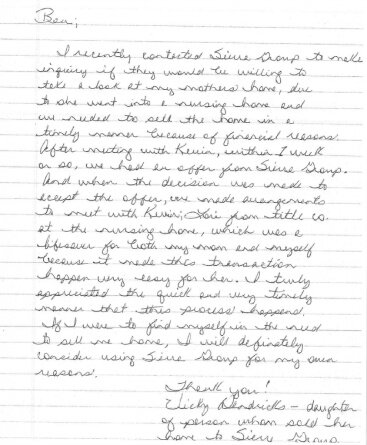 Ben,
I recently contacted Sierre Group to make
inquiry if they would be willing to
take a look at my mothers home, due
to she went into a nursing home and
we needed to sell the home in a
timely manner because of financial reasons.
After meeting with Kevin, within 1 week
or so, we had an offer from Sierre Group.
And when the decision was made to
except the offer, we made arrangements
to meet with Kevin, Lori from title co.
at the nursing home, which was a
lifesaver for both my mom and myself
because it made this transaction
happen very easy for her. I truly
appriciated the quick and very timely
manner that this process happened.
If I were to find myself in the need
to sell me home, I will definately
consider using Sierre Group for my own
reasons.
Thank you!
Vicky Hendricks - daughter
of person whom sold her
home to Sierre Group